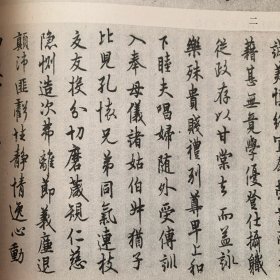 二
藉甚無竟學優登仕攝職
從政存以甘棠去而益詠
樂殊貴賤禮別尊卑上和
下睦夫唱婦隨外受傅訓
入奉母儀諸姑伯叔猶子
比兒孔懷兄弟同氣連枝
交友投分切磨箴規仁慈
隱惻造次弗離節義廉退
顛沛匪虧性靜情逸心動